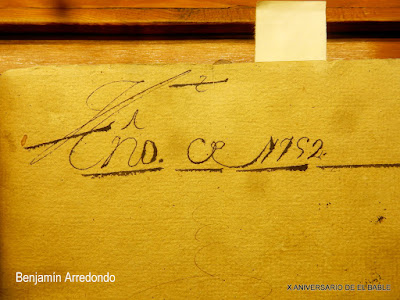 Año. de 1752.
Benjamín Arredondo
X ANIVERSARIO DE EL BABLE